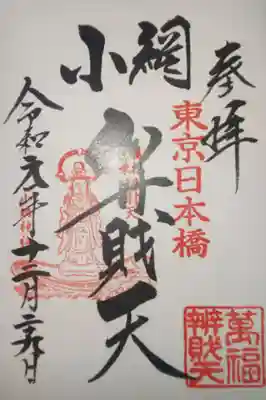 奉拝
東京日本橋
小網
弁財天
令和元年十二月二九日
萬福
辨財天